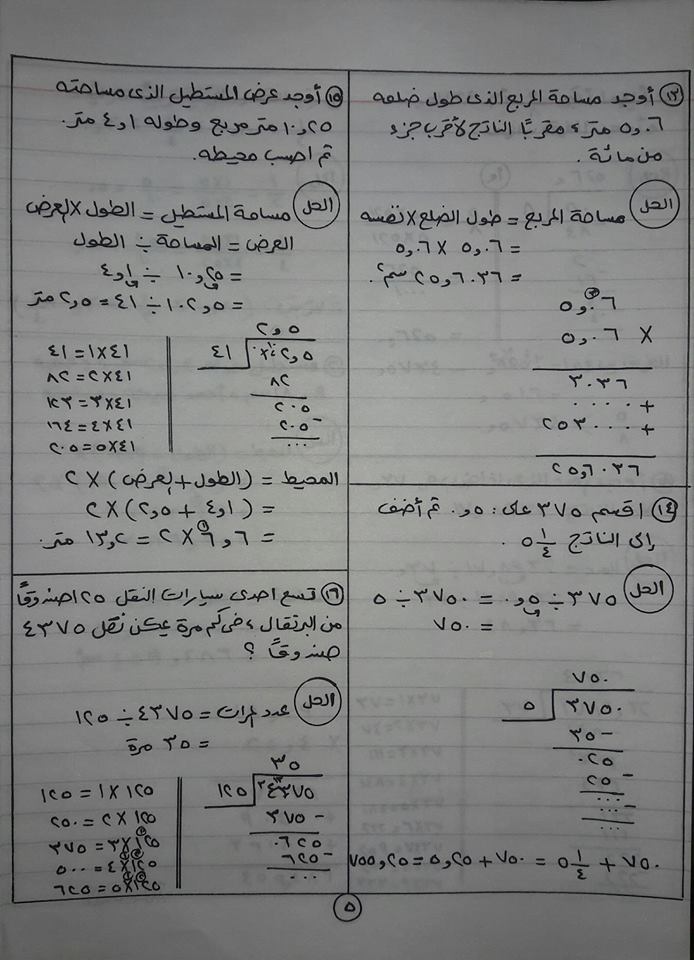 ١٣ أوجد مساحة المربع الذى طول ضلعه
٥,٠٦ متر ، مقربًا الناتج لأقرب جزء
من مائة .
الحل
مساحة المربع = طول الضلع × نفسه
= ٥,٠٦ × ٥,٠٦
= ٢٥,٦٠٣٦ سم٢.
٥,٠٦
× ٥,٠٦
٣٠٣٦
+ ٠٠٠٠
+ ٢٥٣٠٠٠
٢٥,٦٠٣٦
١٤ اقسم ٣٧٥ على : ٠,٥ ثم أضف
إلى الناتج ٥ ١/٤ .
الحل
٣٧٥ ÷ ٠,٥ = ٣٧٥٠ ÷ ٥
= ٧٥٠
٧٥٠
٥ ٣٧٥٠
٣٥ -
٠٢٥
٢٥ -
٠٠٠
-
٠٠٠
٧٥٠ + ٥ ١/٤ = ٧٥٠ + ٥,٢٥ = ٧٥٥,٢٥
١٥ أوجد عرض المستطيل الذى مساحته
١٠,٢٥ متر مربع وطوله ٤,١ متر.
ثم احسب محيطه.
الحل
مساحة المستطيل = الطول × العرض
العرض = المساحة ÷ الطول
= ١٠,٢٥ ÷ ٤,١
= ١٠٢,٥ ÷ ٤١ = ٢,٥ متر
٢,٥
٤١ ١٠٢,٥
٨٢
٢٠٥
٢٠٥ -
٠٠٠
٤١ × ١ = ٤١
٤١ × ٢ = ٨٢
٤١ × ٣ = ١٢٣
٤١ × ٤ = ١٦٤
٤١ × ٥ = ٢٠٥
المحيط = (الطول + العرض) × ٢
= (٤,١ + ٢,٥) × ٢
= ٦,٦ × ٢ = ١٣,٢ متر.
١٦ تسع احدى سيارات النقل ١٢٥ صندوقًا
من البرتقال ، فى كم مرة يمكن نقل ٤٣٧٥
صندوقًا ؟
الحل
عدد المرات = ٤٣٧٥ ÷ ١٢٥
= ٣٥ مرة
٣٥
١٢٥ ٤٣٧٥
٣٧٥ -
٠٦٢٥
٦٢٥ -
٠٠٠
١٢٥ × ١ = ١٢٥
١٢٥ × ٢ = ٢٥٠
١٢٥ × ٣ = ٣٧٥
١٢٥ × ٤ = ٥٠٠
١٢٥ × ٥ = ٦٢٥
٥